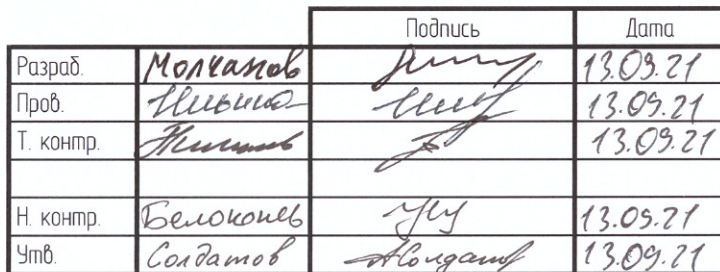 Подпись Дата
Разраб. Молчанов 13.09.21
Пров. 13.09.21
Т. контр. 13.09.21
Н. контр. Белоконев 13.09.21
Утв. Солдатов АСолдатов 13.09.21